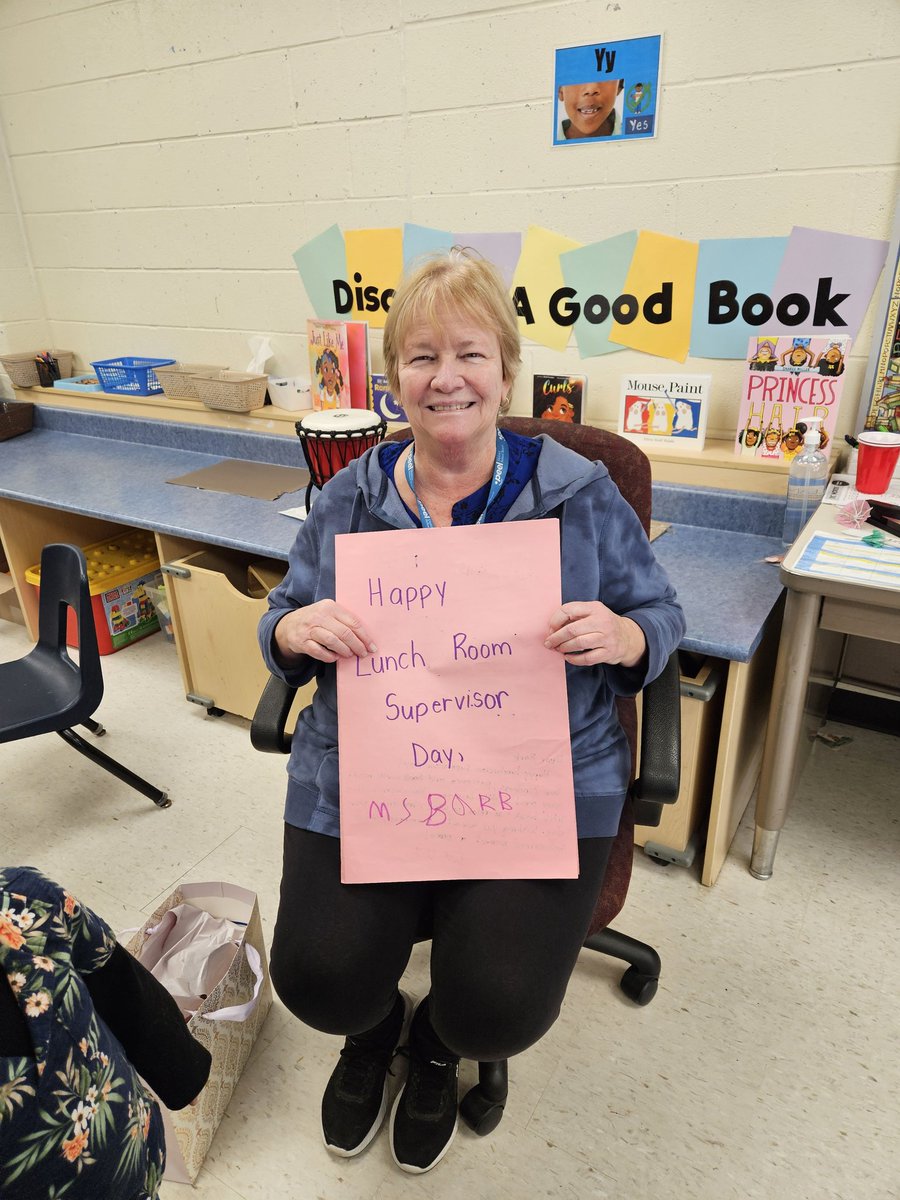 Yy
Yes
Disc A Good Book
Just Like Me
Curls
Mouse Paint
PRINCESS
HAIR
peel
i
Happy
Lunch Room
Supervisor
Day,
MS BARB